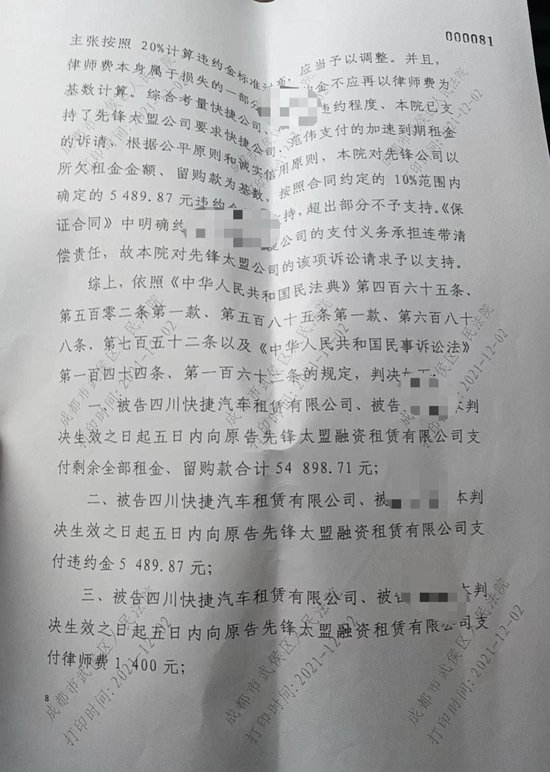 000081
主张按照 20%计算违约金标准过高，应当予以调整。并且，
律师费本身属于损失的一部分 金不应再以律师费为
基数计算。综合考量快捷公司、 违约程度、本院已支
持了先锋太盟公司要求快捷公司、 范伟支付的加速到期租金
的诉请，根据公平原则和诚实信用原则，本院对先锋公司以
所欠租金金额、留购款为基数，按照合同约定的 10%范围内
确定的 5 489.87 元违约金 持，超出部分不予支持。《保
证合同》中明确约 公司的支付义务承担连带清
偿责任，故本院对先锋太盟公司的该项诉讼请求予以支持。
综上，依照《中华人民共和国民法典》第四百六十五条、
第五百零二条第一款、第五百八十五条第一款、第六百八十
八条、第七百五十二条以及《中华人民共和国民事诉讼法》
第一百四十四条、第一百六十二条的规定，判决如下：
一、被告四川快捷汽车租赁有限公司、被告 判
决生效之日起五日内向原告先锋太盟融资租赁有限公司支
付剩余全部租金、留购款合计 54 898.71 元；
二、被告四川快捷汽车租赁有限公司、被 本判
决生效之日起五日内向原告先锋太盟融资租赁有限公司支
付违约金 5 489.87 元；
三、被告四川快捷汽车租赁有限公司、被告 本判
决生效之日起五日内向原告先锋太盟融资租赁有限公司支
付律师费 1 400 元；
8
成都市武侯区人民法院
打印时间：2021-12-02
成都市武侯区人民法院
打印时间：2021-12-02
成都市武侯区人民法院
打印时间：2021-12-02
成都市武侯区人民法院
打印时间：2021-12-02
成都市武侯区人民法院
打印时间：2021-12-02
成都市武侯区人民法院
打印时间：2021-12-02
成都市武侯区人民法院
打印时间：2021-12-02